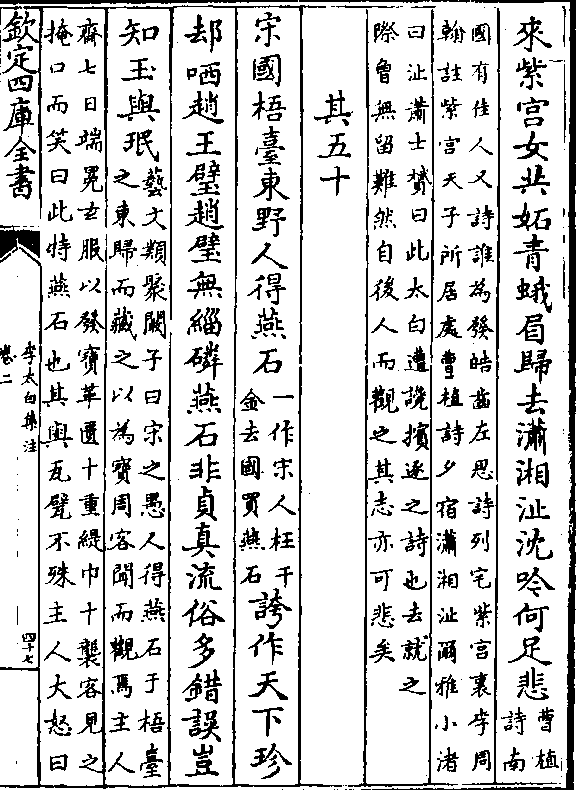 來紫宫女共妬青蛾眉歸去瀟湘沚沈吟何足悲曹植詩南
國有佳人又詩誰為發皓齒左思詩列宅紫宫裏李周
翰註紫宫天子所居處曹植詩夕宿瀟湘沚爾雅小渚
曰沚蕭士贇曰此太白遭讒擯逐之詩也去就之
際曾無留難然自後人而觀之其志亦可悲矣
其五十
宋國梧臺東野人得燕石一作宋人枉千金去國買燕石誇作天下珍
却哂趙王璧趙璧無緇磷燕石非貞真流俗多錯誤豈
知玉與珉藝文類聚闕子曰宋之愚人得燕石于梧臺
之東歸而藏之以為寶周客聞而觀焉主人
齋七日端冕玄服以發寶革匱十重緹巾十襲客見之
掩口而笑曰此特燕石也其與瓦甓不殊主人大怒曰
欽定四庫全書
李太白集注
卷二
四十七